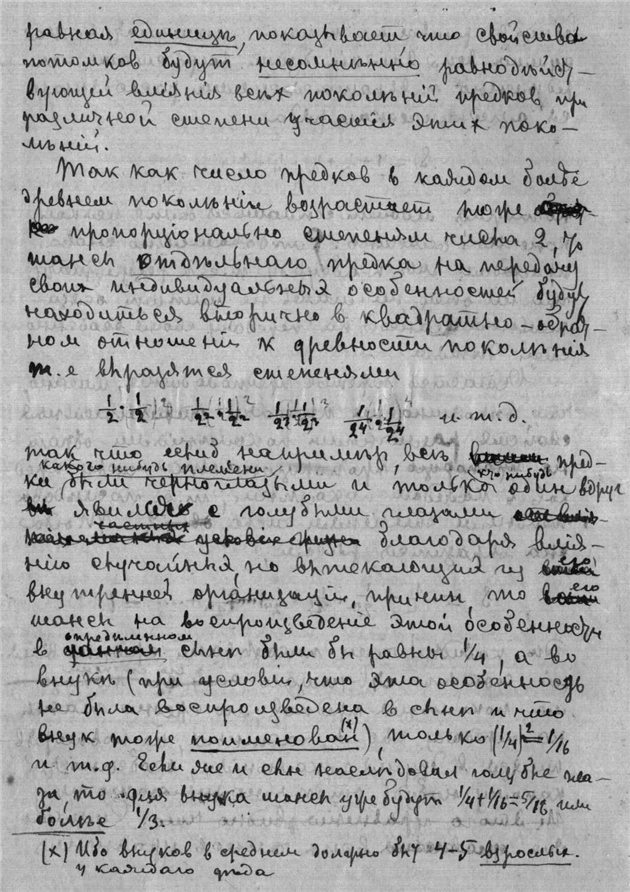 равная единицѣ, показывает что свойства
потомков будут несомнѣнно равнодѣйст-
вующей влiянiя всѣх поколѣнiй предков при
различной степени участiя этих поко-
лѣнiй.
Так как число предков в каждом болѣе
древнем поколѣнiи возрастает тоже
пропорцiонально степеням числа 2, то
шансы отдѣльнаго предка на передачу
своих индивидуальных особенностей будут
находиться вторично в квадратно-образ-
ном отношенiи к древности поколѣнiя
т.е выразятся степенями
1/2·1/2 1/2²·1/2² 1/2³·1/2³ 1/2⁴·1/2⁴ и т.д.
так что если напримѣр, всѣ пред-
какого нибудь племени кто нибудь
ки были черноглазыми и только один вдруг
явился с голубыми глазами
благодаря влiя-
нiю случайныя, но вытекающих из его
внутренней организацiи, причин, то его
шансы на воспроизведенiе этой особенности
определенном
в сынѣ были бы равны 1/4, а во
внукѣ (при условiи, что эта особенность
не была воспроизведена в сынѣ и что
внук тоже поименован(х)), только (1/4)²=1/16
и т.д. Если же и сын наслѣдовал голубые гла-
за, то для внука шансы уже будут 1/4+1/16=5/16 или
болѣе 1/3.
(х) Ибо внуков в среднем должно быть 4-5 взрослых.
у каждаго дѣда